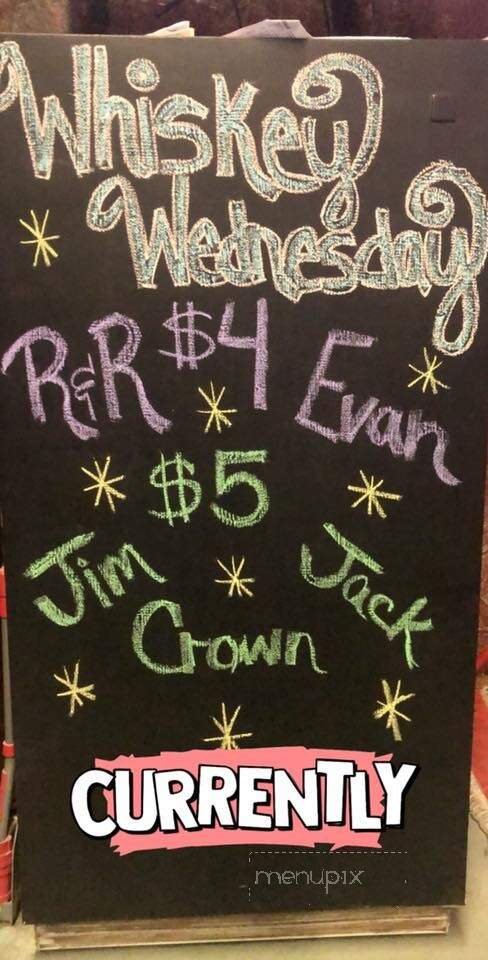 Whiskey
Wednesday
R&R $4 Evan
$5
Jim Jack
Crown
CURRENTLY
menupix